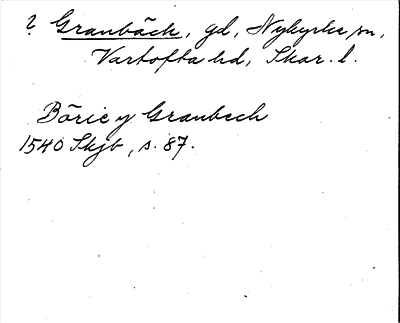 ? Granbäck, gd, Nykyrke sn,
Vartofta hd, Skar. l.
Börie y Granbech
1540 Skjb, s. 87.